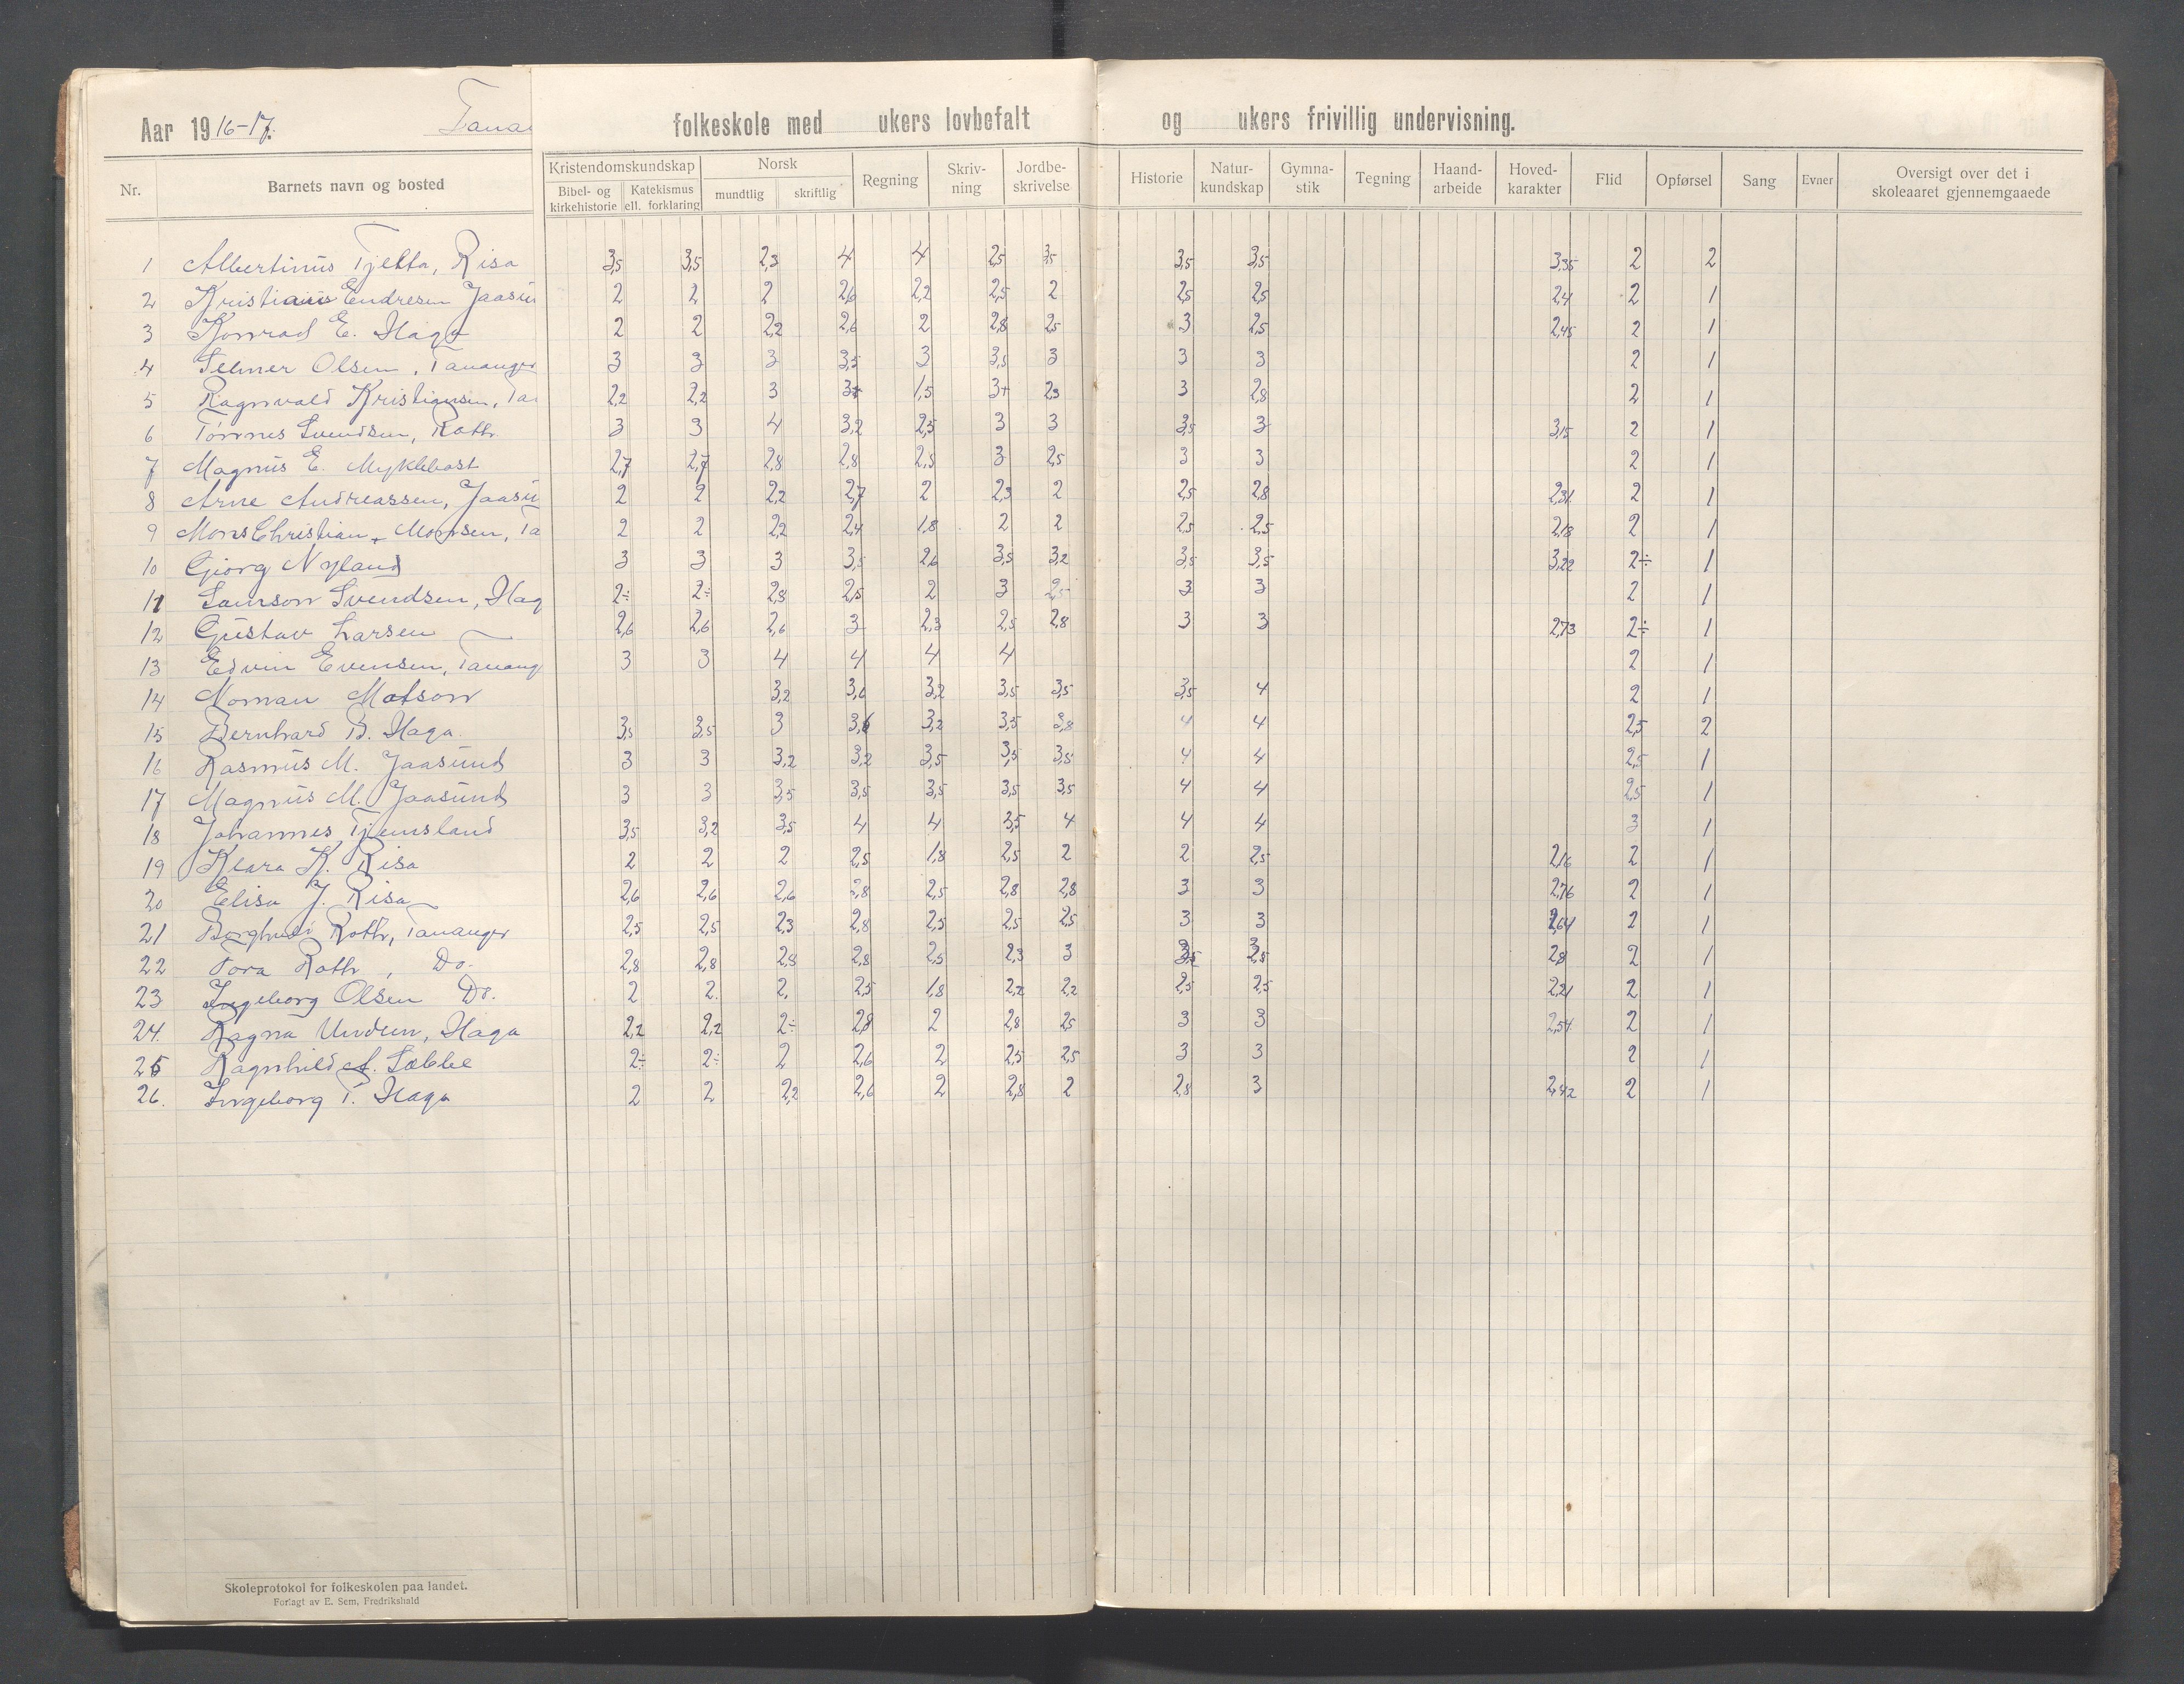 Aar 1916-17. Tana folkeskole med ukers lovbefalt og ukers frivillig undervisning.
Nr. Barnets navn og bosted Kristendomskundskap Bibel- og kirkehistorie Katekismus ell. forklaring Norsk mundtlig skriftlig Regning Skriv-ning Jordbe-skrivelse Historie Natur-kundskap Gymna-stik Tegning Haand-arbeide Hoved-karakter Flid Opførsel Sang Evner Oversigt over det i skoleaaret gjennemgaaede
1 Albertinus Tjelta, Risa 3,5 3,5 2,3 4 4 2,5 3,5 3,5 3,5 3,35 2 2
2 Kristianus Endresen Jaasu 2 2 2 2,6 2,2 2,5 2 2,5 2,5 2,4 2 1
3 Konrad E. Haga 2 2 2,2 2,6 2 2,8 2,5 3 2,5 2,45 2 1
4 Selmer Olsen, Tananger 3 3 3 3,5 3 3,5 3 3 3 2 1
5 Ragnvald Kristiansen, Ta 2,2 2,2 3 3+ 1,5 3+ 2,3 3 2,8 2 1
6 Tønnes Svendsen, Roth 3 3 4 3,2 2,5 3 3 3,5 3 3,15 2 1
7 Magnus E. Myklebost 2,7 2,7 2,8 2,8 2,5 3 2,5 3 3 2 1
8 Arne Andreassen, Jaasu 2 2 2,2 2,7 2 2,3 2 2,5 2,8 2,31 2 1
9 Mons Christian Monsen, Ta 2 2 2,2 2,4 1,8 2 2 2,5 2,5 2,18 2 1
10 Giorg Nyland 3 3 3 3,5 2,6 3,5 3,2 3,5 3,5 3,22 2÷ 1
11 Samson Svendsen, Hag 2÷ 2÷ 2,8 2,5 2 3 2,5 3 3 2 1
12 Gustav Larsen 2,6 2,6 2,6 3 2,3 2,5 2,8 3 3 2,73 2÷ 1
13 Edvin Evensen, Tanang 3 3 4 4 4 4 2 1
14 Noman Matson 3,2 3,6 3,2 3,5 3,5 3,5 4 2 1
15 Bernhard B. Haga. 3,5 3,5 3 3,6 3,2 3,5 3,8 4 4 2,5 2
16 Rasmus M. Jaasund 3 3 3,2 3,2 3,5 3,5 3,5 4 4 2,5 1
17 Magnus M. Jaasund 3 3 3,5 3,5 3,5 3,5 3,5 4 4 2,5 1
18 Johannes Tjemsland 3,5 3,2 3,5 4 4 3,5 4 4 4 3 1
19 Klara K. Risa 2 2 2 2,5 1,8 2,5 2 2 2,5 2,16 2 1
20 Elisa J. Risa 2,6 2,6 2,6 2,8 2,5 2,8 2,8 3 3 2,76 2 1
21 Borghild Roth, Tananger 2,5 2,5 2,3 2,8 2,5 2,5 2,5 3 3 2,64 2 1
22 Tora Roth, Do. 2,8 2,8 2,8 2,8 2,5 2,3 3 2,8 2 1
23 Ingeborg Olsen Do. 2 2. 2. 2,5 1,8 2,2 2,2 2,5 2,5 2,21 2 1
24. Ragna Undem, Haga 2,2 2,2 2÷ 2,8 2 2,8 2,5 3 3 2,54 2 1
25 Ragnhild A. Sæbbe 2÷ 2÷ 2 2,6 2 2,5 2,5 3 3 2 1
26. Ingeborg T. Haga 2 2 2,2 2,6 2 2,8 2 2,8 3 2,42 2 1
Skoleprotokol for folkeskolen paa landet.
Forlagt av E. Sem, Fredrikshald